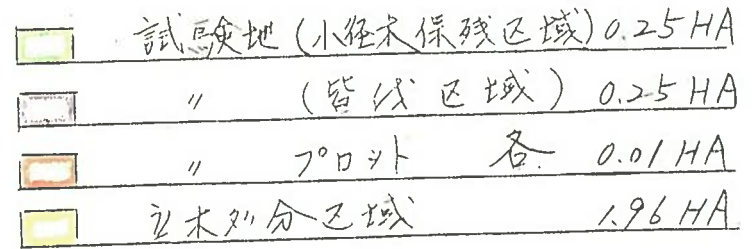 試験地(小径木保残区域)0.25HA
〃 (皆伐区域) 0.25HA
〃 プロット 各 0.01HA
立木処分区域 1.96HA